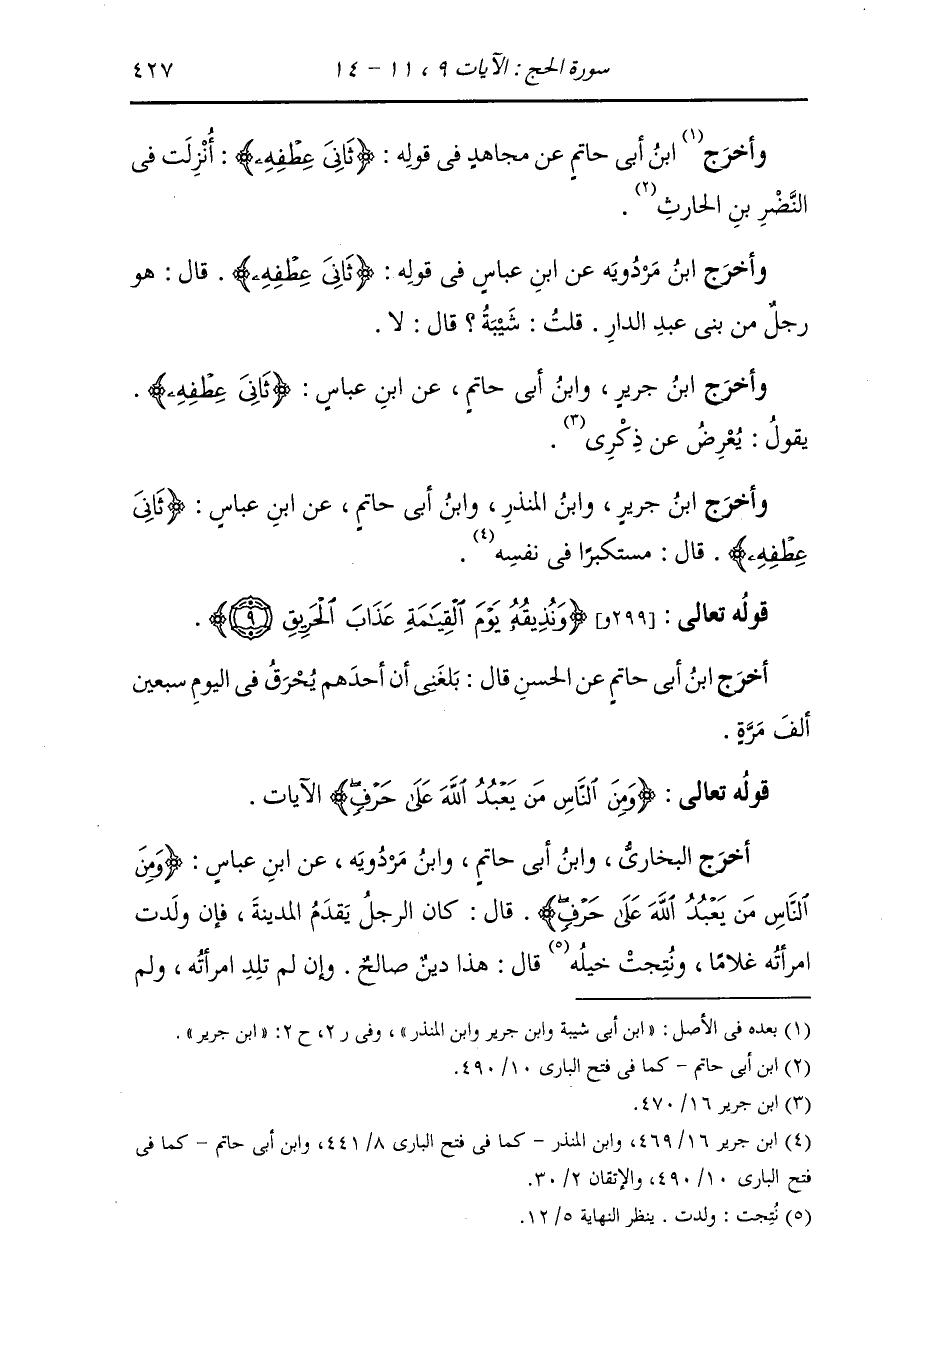 سورة الحج : الآيات ٩ ، ١١ - ١٤ ٤٢٧
وأخرَج(١) ابنُ أبى حاتمٍ عن مجاهدٍ فى قولِه : ﴿ثَانِىَ عِطْفِهِۦ﴾ : أُنْزِلَت فى
النَّضْرِ بنِ الحارثِ(٢) .
وأخرَج ابنُ مَرْدُويَه عن ابنِ عباسٍ فى قولِه : ﴿ثَانِىَ عِطْفِهِۦ﴾ . قال : هو
رجلٌ من بنى عبدِ الدارِ . قلتُ : شَيْبَةُ ؟ قال : لا .
وأخرَج ابنُ جريرٍ ، وابنُ أبى حاتمٍ ، عن ابنِ عباسٍ : ﴿ثَانِىَ عِطْفِهِۦ﴾ .
يقولُ : يُعْرِضُ عن ذِكْرِى(٣) .
وأخرَج ابنُ جريرٍ ، وابنُ المنذرِ ، وابنُ أبى حاتمٍ ، عن ابنِ عباسٍ : ﴿ثَانِىَ
عِطْفِهِۦ﴾ . قال : مستكبرًا فى نفسِه(٤) .
قولُه تعالى : [٢٩٩و] ﴿وَنُذِيقُهُۥ يَوْمَ ٱلْقِيَـٰمَةِ عَذَابَ ٱلْحَرِيقِ ٩﴾ .
أخرَج ابنُ أبى حاتمٍ عن الحسنِ قال : بَلغَنِى أن أحدَهم يُحْرَقُ فى اليومِ سبعين
ألفَ مَرَّةٍ .
قولُه تعالى : ﴿وَمِنَ ٱلنَّاسِ مَن يَعْبُدُ ٱللَّهَ عَلَىٰ حَرْفٍۖ﴾ الآيات .
أخرَج البخارىُّ ، وابنُ أبى حاتمٍ ، وابنُ مَرْدُويَه ، عن ابنِ عباسٍ : ﴿وَمِنَ
ٱلنَّاسِ مَن يَعْبُدُ ٱللَّهَ عَلَىٰ حَرْفٍۖ﴾ . قال : كان الرجلُ يَقدَمُ المدينةَ ، فإن ولَدت
امرأتُه غلامًا ، ونُتِجتْ خيلُه(٥) قال : هذا دينٌ صالحٌ . وإن لم تلِدِ امرأتُه ، ولم
(١) بعده فى الأصل : « ابن أبى شيبة وابن جرير وابن المنذر » ، وفى ر ٢، ح ٢: « ابن جرير » .
(٢) ابن أبى حاتم - كما فى فتح البارى ١٠/ ٤٩٠.
(٣) ابن جرير ١٦/ ٤٧٠.
(٤) ابن جرير ١٦/ ٤٦٩، وابن المنذر - كما فى فتح البارى ٨/ ٤٤١، وابن أبى حاتم - كما فى
فتح البارى ١٠/ ٤٩٠، والإتقان ٢/ ٣٠.
(٥) نُتِجت : ولدت . ينظر النهاية ٥/ ١٢.